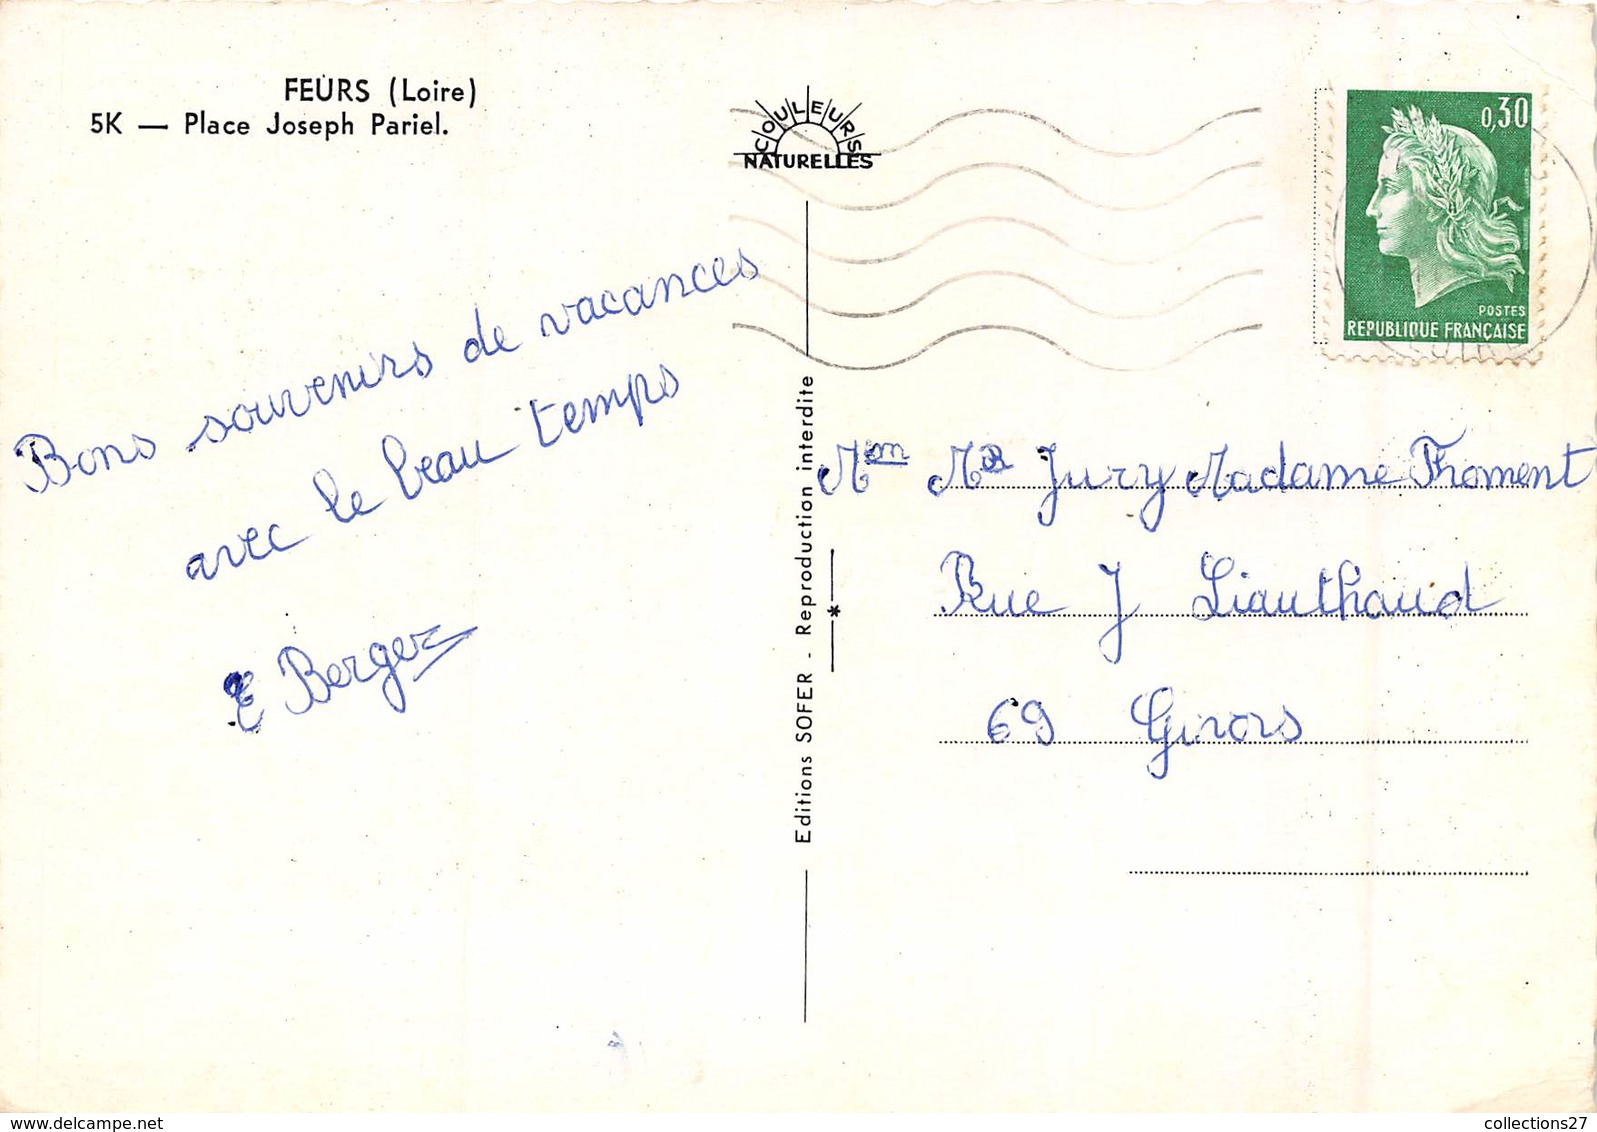 FEURS (Loire)
5K — Place Joseph Pariel.
COULEURS
NATURELLES
0,30
POSTES
REPUBLIQUE FRANÇAISE
Bons souvenirs de vacances
avec le beau temps
E Berger
Editions SOFER - Reproduction interdite
Mm MR Jury Madame Froment
Rue J Liauthaud
69 Givors
collections27